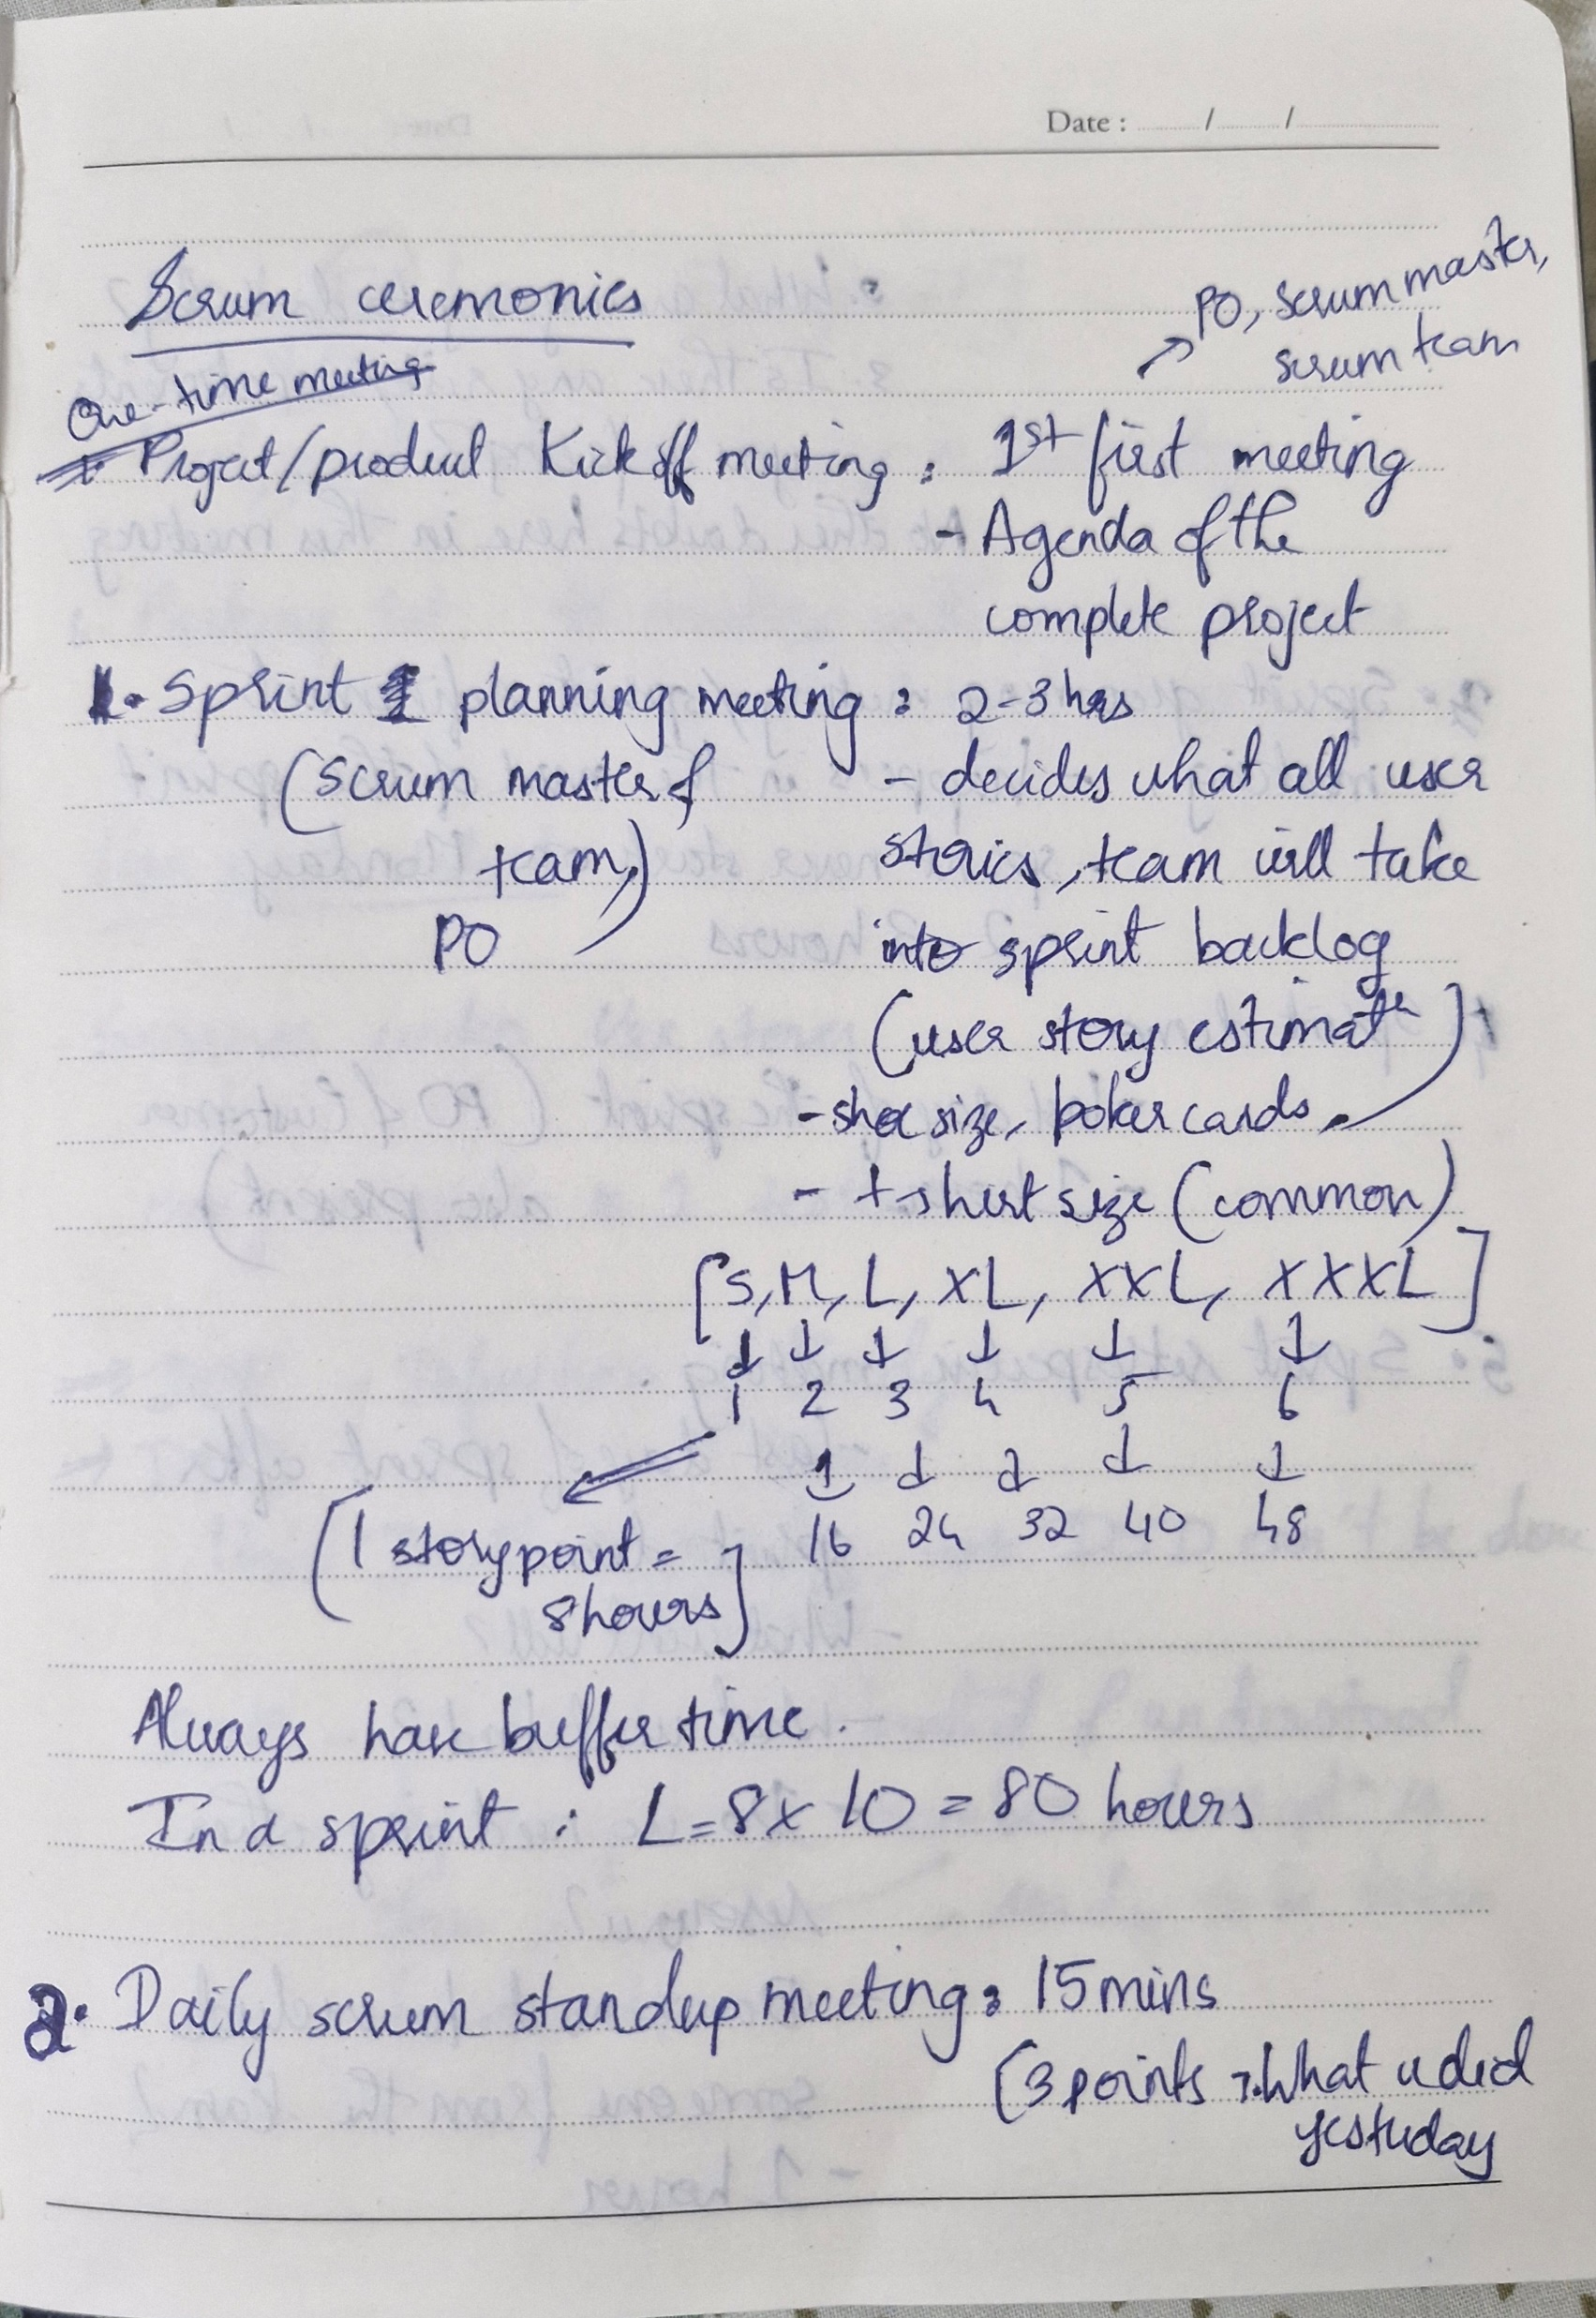 Date : / /
Scrum ceremonies
PO, scrum master,
scrum team
One-time meeting
Project/product Kickoff meeting : 1st first meeting
- Agenda of the
complete project
1. Sprint planning meeting : 2-3 hrs
(Scrum master &
team,)
PO
- decides what all user
stories, team will take
into sprint backlog
(user story estimatn)
- shoe size, poker cards
- t-shirt size (common)
[S, M, L, XL, XXL, XXXL]
1 2 3 4 5 6
16 24 32 40 48
(1 story point =
8 hours]
Always have buffer time.
In a sprint : L = 8 x 10 = 80 hours
2. Daily scrum standup meeting : 15 mins
(3 points What u did
yesterday